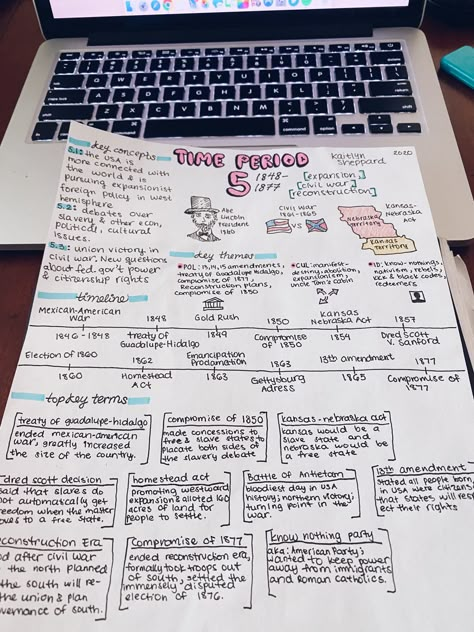 key concepts
5.1: the USA is
more connected with
the world & is
pursuing expansionist
foreign policy in west
hemisphere.
5.2: debates over
slavery & other econ,
political, cultural
issues.
5.3: union victory in
civil war. New questions
about fed. gov't power
& citizenship rights
TIME PERIOD
5
1848-
1877
[expansion,
civil war,
reconstruction]
Kaitlyn
Sheppard
2020
Abe
Lincoln
President
1860
Civil War
1861-1865
VS
Nebraska
Territory
Kansas
Territory
Kansas-
Nebraska
Act
key themes
POL: 13,14,15 amendments,
treaty of Guadalupe Hidalgo,
compromise of 1877,
Reconstruction plans,
compromise of 1850
CUL: manifest-
destiny, abolition,
expansionism,
uncle Tom's cabin
ID: know-nothings,
nativism, rebels,
KKK & black codes,
redeemers
timeline
Mexican-American
War
1848
Gold Rush
1850
Kansas
Nebraska Act
1857
1846-1848
Treaty of
Guadalupe-Hidalgo
1849
Compromise
of 1850
1854
Dred Scott
V. Sanford
Election of 1860
1862
Emancipation
Proclamation
1863
13th amendment
1877
1860
Homestead
Act
1863
Gettysburg
Adress
1865
Compromise of
1877
top key terms
treaty of guadalupe-hidalgo
ended mexican-american
war, greatly increased
the size of the country.
compromise of 1850
made concessions to
free & slave states to
placate both sides of
the slavery debate.
kansas-nebraska act
kansas would be a
slave state and
nebraska would be
a free state
dred scott decision
said that slaves do
not automatically get
freedom when the master
moves to a free state.
homestead act
promoting westward
expansion & alloted 160
acres of land for
people to settle.
Battle of Antietam
bloodiest day in USA
history; northern victory;
turning point in the
war.
13th amendment
stated all people born
in USA were citizens
that states will res-
ect their rights
econstruction Era
od after civil war
the north planned
the south will re-
the union & plan
vernance of south.
Compromise of 1877
ended reconstruction era,
formally took troops out
of south, settled the
immensely disputed
election of 1876.
know nothing party
aka: American Party;
wanted to keep power
away from immigrants
and Roman Catholics.